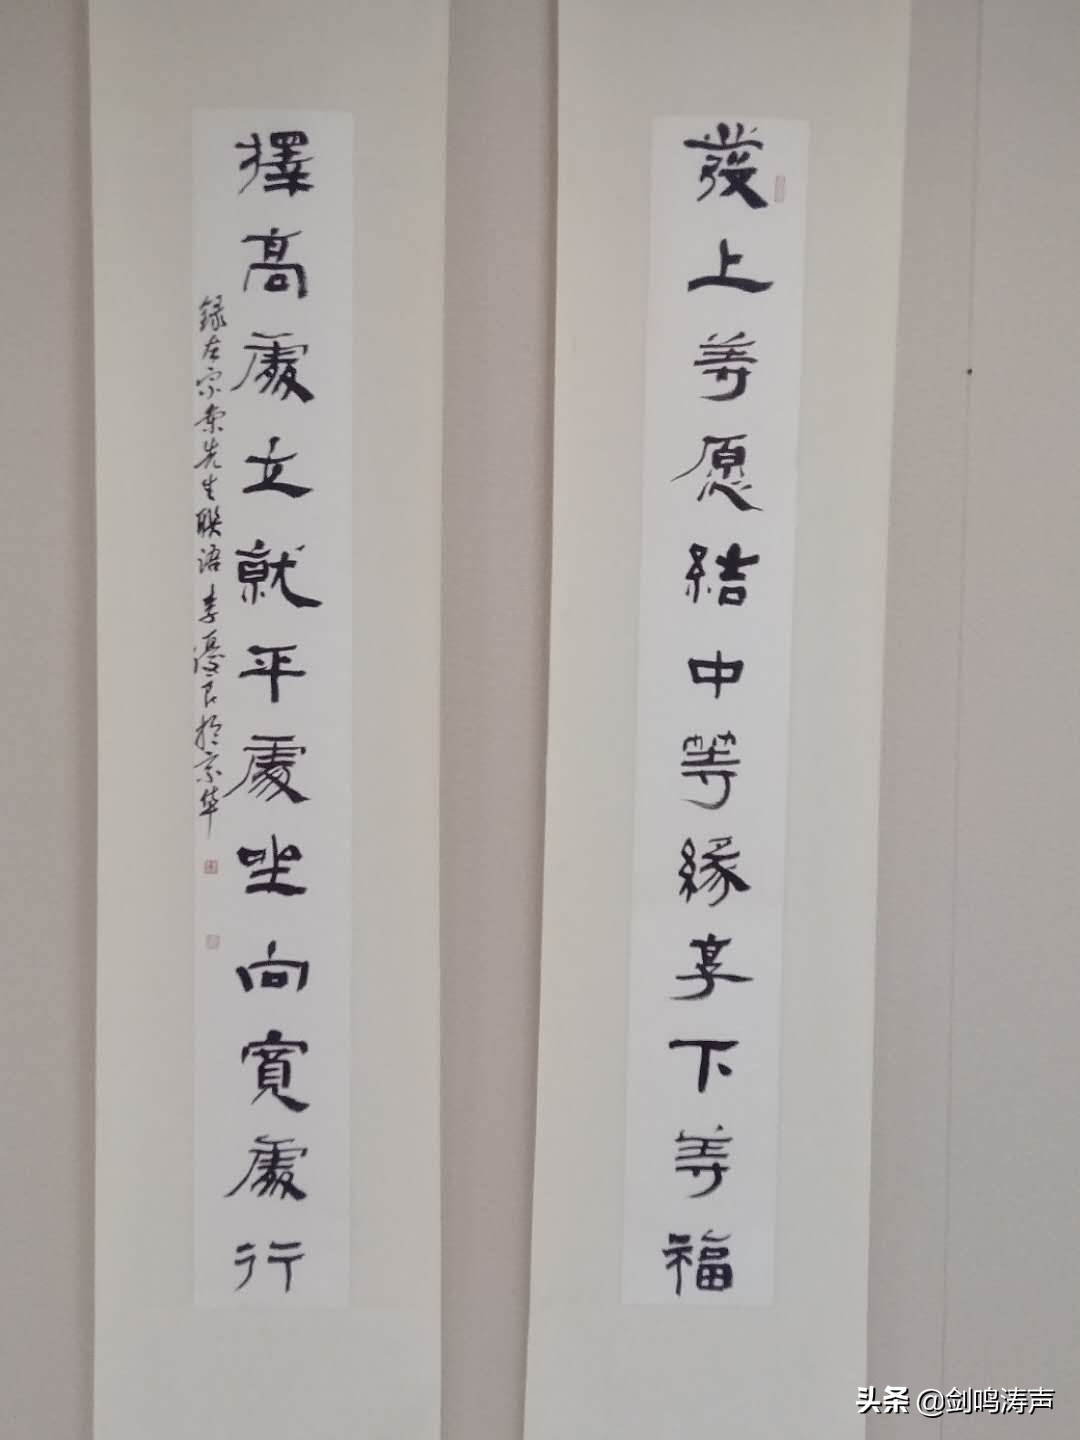 發上等愿結中等緣享下等福
擇高處立就平處坐向寬處行
録左宗棠先生聯语 李優良於京华
头条 @剑鸣涛声